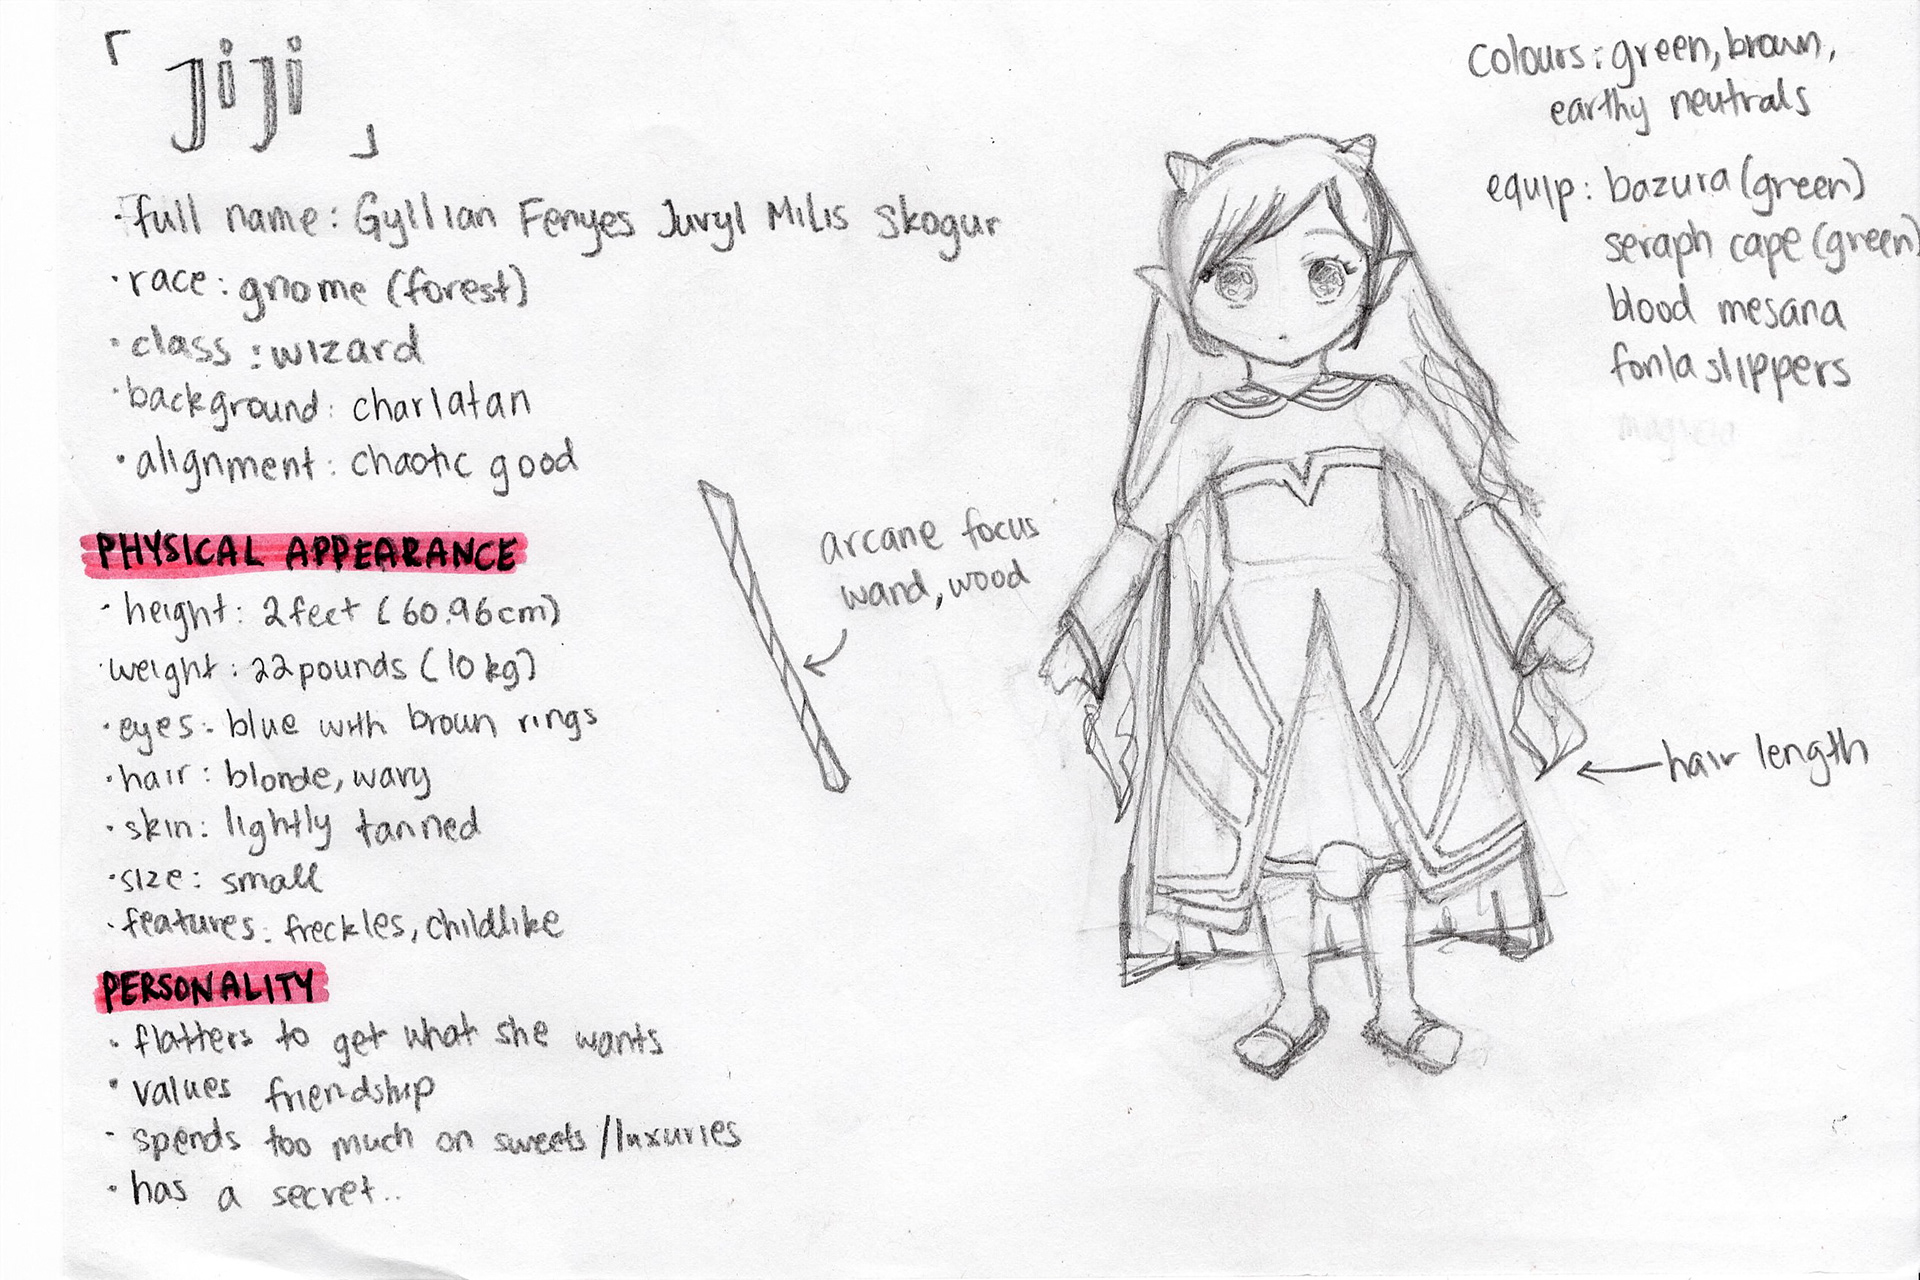 「jiji」
·full name: Gyllian Fenyes Juvyl Milis Skogur
·race: gnome (forest)
·class: wizard
·background: charlatan
·alignment: chaotic good
PHYSICAL APPEARANCE
·height: 2 feet (60.96cm)
·weight: 22 pounds (10 kg)
·eyes: blue with brown rings
·hair: blonde, wavy
·skin: lightly tanned
·size: small
·features: freckles, childlike
PERSONALITY
·flatters to get what she wants
·values friendship
·spends too much on sweets/luxuries
·has a secret..
arcane focus
wand, wood
colours: green, brown,
earthy neutrals
equip: bazura (green)
seraph cape (green)
blood mesana
fonla slippers
hair length